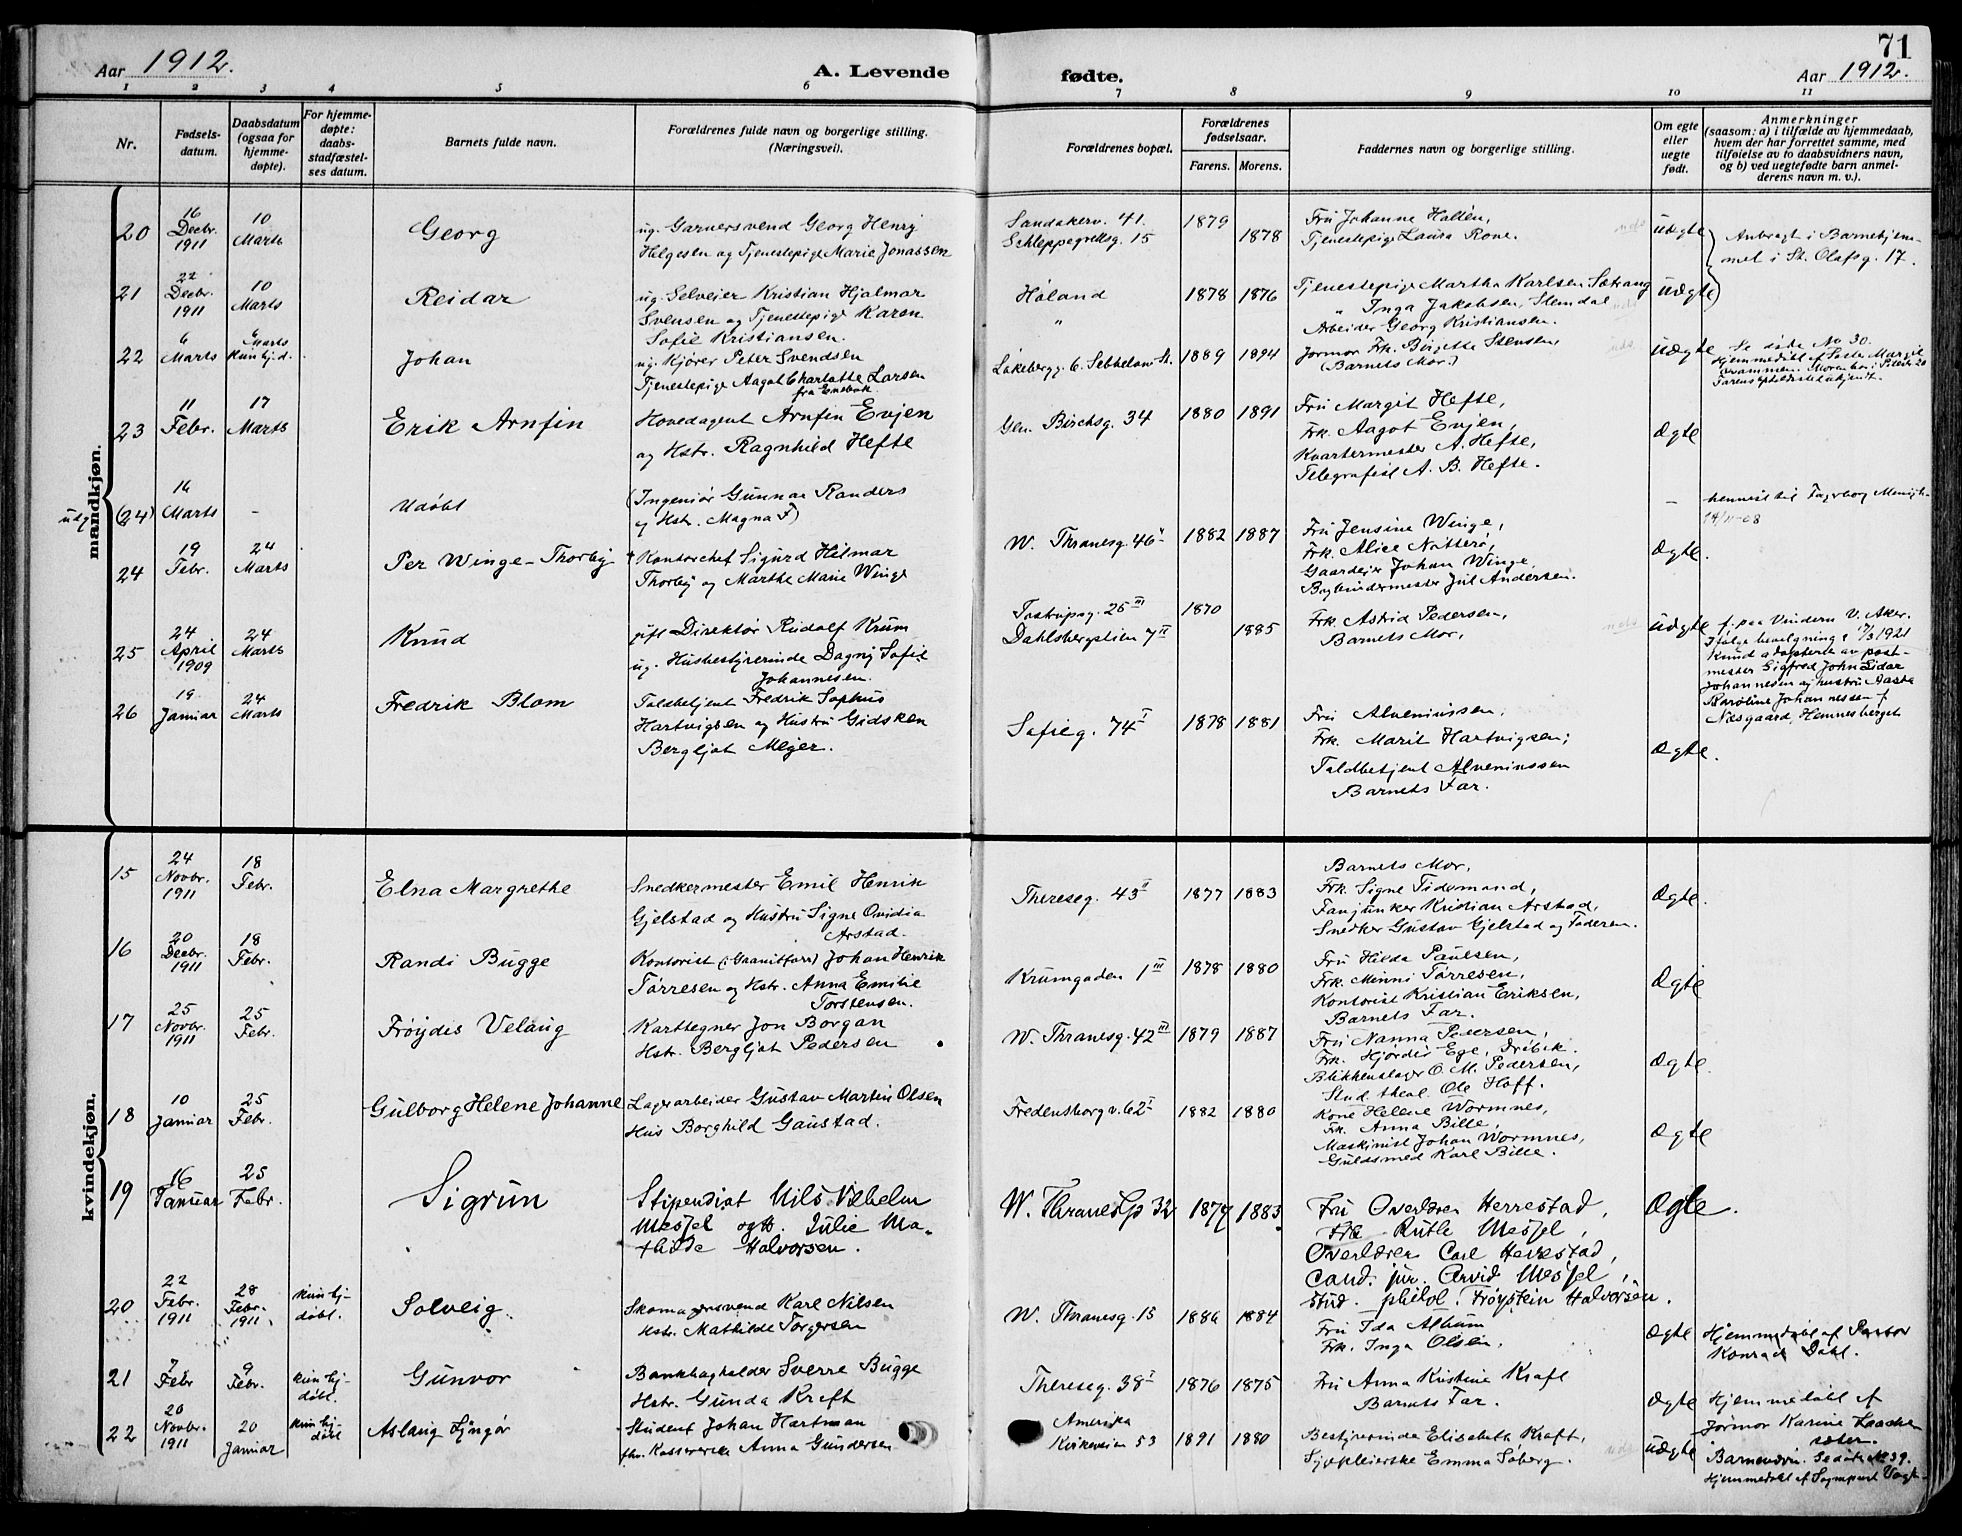 71
Aar 1912.
A. Levende fødte.
Aar 1912.
1 2 3 4 5 6 7 8 9 10 11
Nr.
Fødsels-
datum.
Daabsdatum
(ogsaa for
hjemme-
døpte).
For hjemme-
døpte:
daabs-
stadfæstel-
ses datum.
Barnets fulde navn.
Forældrenes fulde navn og borgerlige stilling.
(Næringsvei).
Forældrenes bopæl.
Forældrenes
fødselsaar.
Farens. Morens.
Faddernes navn og borgerlige stilling.
Om egte
eller
uegte
født.
Anmerkninger
(saasom: a) i tilfælde av hjemmedaab,
hvem der har forrettet samme, med
tilføielse av to daabsvidners navn,
og b) ved uegtefødte barn anmel-
derens navn m. v.).
mandkjøn.
20
16
Decbr.
1911
10
Marts
Georg
ug. Garversvend Georg Henry
Helgesen og Tjenestepige Marie Jonassen
Sandakerv. 41.
Schleppegrellsg. 15
1879
1878
Fru Johanne Hallén,
Tjenestepige Laura Rove.
uægte
Anbragt i Barnehjem-
met i St. Olafsg. 17.
21
22
Decbr.
1911
10
Marts
Reidar
ug. Selveier Kristian Hjalmar
Svensen og Tjenestepige Karen
Sofie Kristiansen.
Høland
"
1878 1876
Tjenestepige Martha Karlsen Sætrang
" Inga Jakobsen, Slemdal
Arbeider Georg Kristiansen.
uægte
22
6
Marts
6
Marts
kun hj.d.
Johan
ug. Kjører Peter Svendsen
Tjenestepige Aagot Charlotte Larsen
fra Enebak
1889 1894
Jormor Frk. Birgitte Stensen,
(Barnets Mor)
uægte
Se side No 30.
23
11
Febr.
17
Marts
Erik Arnfin
Hovedagent Arnfin Evjen
og Hstr. Ragnhild Hefte
Gen. Birchsg. 34
1880 1891
Fru Margit Hefte,
Frk. Aagot Evjen,
Kvartermester A. Hefte,
Telegrafist A. B. Hefte.
Ægte
utg (24)
16
Marts
-
Udøbt
(Ingeniør Gunnar Randers
og Hstr. Magna F)
-
henvist til Fagerborg Menigh.
24
19
Febr.
24
Marts
Per Winge-Thorby
Kontorchef Sigurd Hilmar
Thorby og Marthe Marie Winge
W. Thranesg. 46
1882 1887
Fru Jensine Winge,
Frk. Alice Nøtterø,
Gaardeier Johan Winge,
Bogbindermester Jul Andersen.
Ægte.
25
24
April
1909
24
Marts
Knud
gift Direktør Rudolf Krum
ug. Husbestyrerinde Dagny Sofie
Johannesen.
Tostrupsg. 25 III
Dahlsbergstien 7 II
1870
1885
Frk. Astrid Pedersen,
Barnets Mor,
uægte
f. paa Vindern V. Aker.
Ifølge bevilgning 1921
Knud adopteret av post-
mester Sigfred John Sidar
Johannesen og hustru Aasta
Karoline Johannessen f.
Nesgaard, Hemnesberget
26
19
Januar
24
Marts
Fredrik Blom
Toldbetjent Fredrik Sophus
Hartvigsen og Hustru Gidsken
Bergljot Meyer.
Sofieg. 74 I
1878 1881
Fru Alveniussen,
Frk. Marit Hartvigsen;
Toldbetjent Alveniussen
Barnets Far.
Ægte.
kvindekjøn.
15
24
Novbr.
1911
18
Febr.
Elna Margrethe
Snedkermester Emil Henrik
Gjelstad og Hustru Signe Ovidia
Arstad.
Thereseg. 43 II
1877 1883
Barnets Mor,
Frk. Signe Tidemand,
Fanjunker Kristian Arstad,
Snedker Gustav Gjelstad og Faderen.
Ægte.
16
20
Decbr.
1911
18
Febr.
Randi Bugge
Kontorist (i Granitforr.) Johan Henrik
Tørresen og Hstr. Anna Emilie
Torstensen.
Krumgaden 1 III
1878 1880
Fru Hilda Paulsen,
Frk. Minni Tørresen,
Kontorist Kristian Eriksen,
Barnets Far.
Ægte
17
25
Novbr.
1911
25
Febr.
Frøydis Velaug
Karttegner Jon Borgan
Hstr. Bergljot Pedersen
W. Thranesg. 42 III
1879 1887
Fru Nanna Petersen,
Frk. Hjørdis Ege, Drøbak.
Blikkenslager O. M. Pedersen,
Stud. theol. Ole Hoff.
Ægte.
18
10
Januar
25
Febr.
Gulborg Helene Johanne
Lagerarbeider Gustav Martin Olsen
Hus Borghild Gaustad.
Fredensborgv. 62 I
1882 1880
Kone Helene Wormnes,
Frk. Anna Bille,
Maskinist Johan Wormnes,
Guldsmed Karl Bille.
Ægte
19
16
Januar
25
Febr.
Sigrun
Stipendiat Nils Vilhelm
Messel og H. Julie Ma-
thilde Halvorsen.
W. Thranesg 32
1877 1883
Fru Overlærer Herrestad,
Frk Ruth Messel,
Overlærer Carl Herrestad,
cand. jur. Arvid Messel,
stud. philol. Frøystein Halvorsen.
Ægte.
20
22
Febr.
1911
28
Febr.
1911
kun hj-
døbt.
Solveig.
Skomagersvend Karl Nilsen
Hstr. Mathilde Torgersen
W. Thranesg. 15
1886 1884
Fru Ida Album
Frk. Inga Olsen,
Ægte
Hjemmedøbt af Pastor
Konrad Dahl.
21
7
Febr
9
Febr.
kun hj-
døbt.
Gunvor
Bankbogholder Sverre Bugge
Hstr. Gunda Kraft
Thereseg. 38 I
1876 1875
Fru Anna Kristine Kraft
Barnets Far.
Ægte
Hjemmedøbt af
Jormor Karine Laache
sæter.
22
20
Novbr.
1911
20
Januar
kun hj-
døbt
Aslaug Lyngør
Student Johan Hartman
Anna Gundersen
Amerika
Kirkeveien 53
1891 1880
Bestyrerinde Elisabeth Kraft,
Sypleierske Emma Søberg.
uægte
Hjemmedøbt af Sognprest Vogt